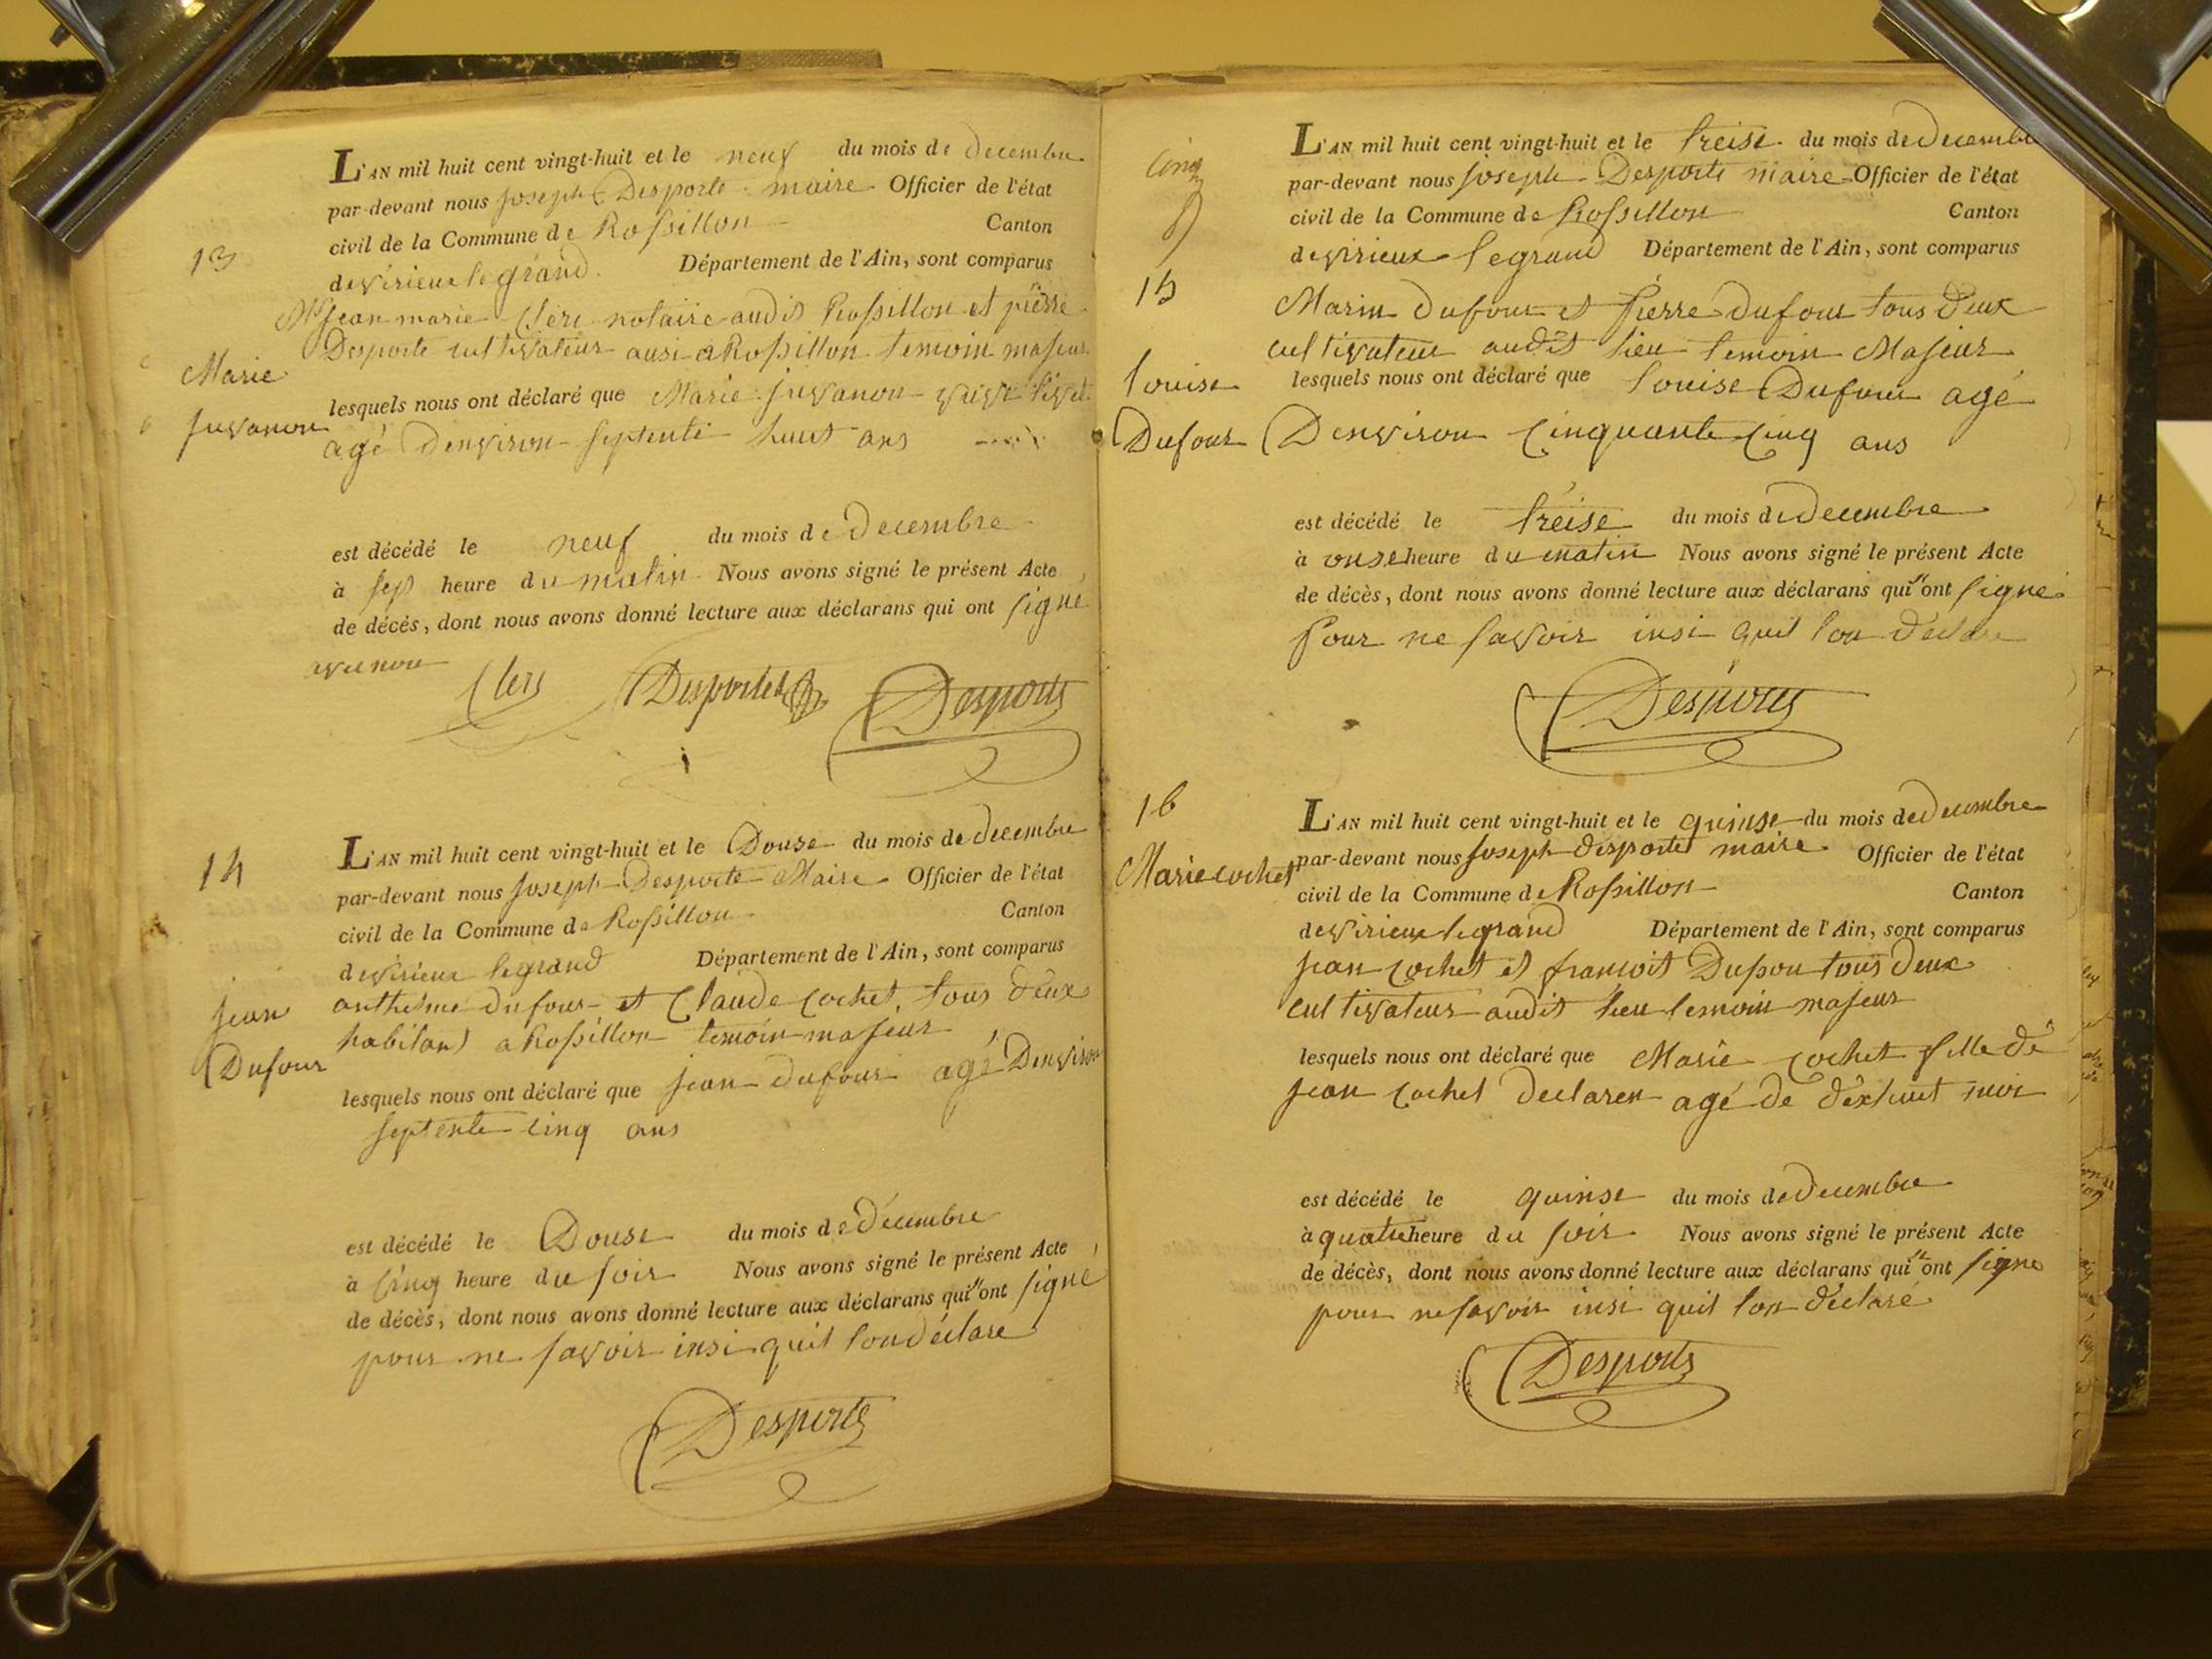 13
Marie
Juvanon
L'AN mil huit cent vingt-huit et le neuf du mois de decembre
par-devant nous joseph Desporte maire Officier de l'état
civil de la Commune de Rossillon Canton
de virieu le grand Département de l'Ain, sont comparus
Me jean marie Clerc notaire audit Rossillon et pierre
Desporte cultivateur ausi a Rossillon temoin majeur
lesquels nous ont déclaré que Marie juvanon
agé denviron septente huit ans
est décédé le neuf du mois de Decembre
à sept heure du matin Nous avons signé le présent Acte
de décés, dont nous avons donné lecture aux déclarans qui ont signé
avec nous
Clerc Desportes Desportes
14
jean
Dufour
L'AN mil huit cent vingt-huit et le Douse du mois de decembre
par-devant nous joseph Desporte Maire Officier de l'état
civil de la Commune de Rossillon Canton
de virieux legrand Département de l'Ain, sont comparus
anthelme dufour et Claude Cochet tous deux
habitant a Rossillon temoin majeur
lesquels nous ont déclaré que jean dufour agé Denviron
septente cinq ans
est décédé le Douse du mois de Décembre
à cinq heure du soir Nous avons signé le présent Acte
de décès, dont nous avons donné lecture aux déclarans qui n'ont signé
pour ne savoir insi quil lon déclare
Desportes
cinq
15
louise
Dufour
L'AN mil huit cent vingt-huit et le treise du mois de decembre
par-devant nous joseph Desporte maire Officier de l'état
civil de la Commune de Rossillon Canton
de virieux legrand Département de l'Ain, sont comparus
Marin dufour et Pierre dufour tous deux
cultivateur audit lieu temoin Majeur
lesquels nous ont déclaré que louise Dufour agé
Denviron Cinquante Cinq ans
est décédé le treise du mois de Decembre
à onse heure du matin Nous avons signé le présent Acte
de décès, dont nous avons donné lecture aux déclarans qui n'ont signé
Pour ne savoir insi quil lon déclare
Desportes
16
Marie cochet
L'AN mil huit cent vingt-huit et le quinse du mois de decembre
par-devant nous joseph desportes maire Officier de l'état
civil de la Commune de Rossillon Canton
de virieux legrand Département de l'Ain, sont comparus
jean cochet et francoit Dupou tous deux
cultivateur audit lieu temoin majeur
lesquels nous ont déclaré que Marie cochet fille de
jean cochet declaren agé de dexhuet moi
est décédé le quinse du mois de decembre
à quatre heure du soir Nous avons signé le présent Acte
de décès, dont nous avons donné lecture aux déclarans qui n'ont signé
pour ne savoir insi quil lon déclaré
Desportes